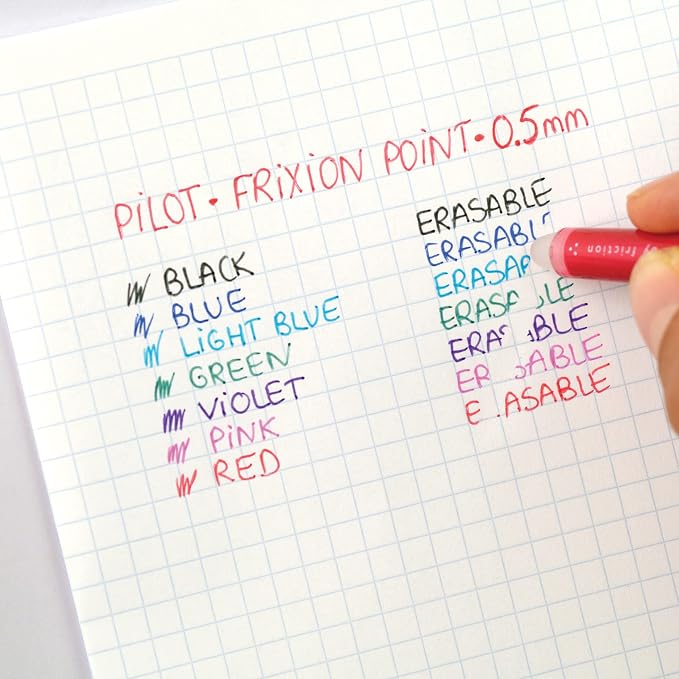 PiLOT · FRiXION POiNT · 0.5mm
BLACK
BLUE
LiGHT BLUE
GREEN
ViOLET
PiNK
RED
ERASABLE
ERASABL
ERASA
ERASA LE
ERA BLE
ER ABLE
E ASABLE
by friction